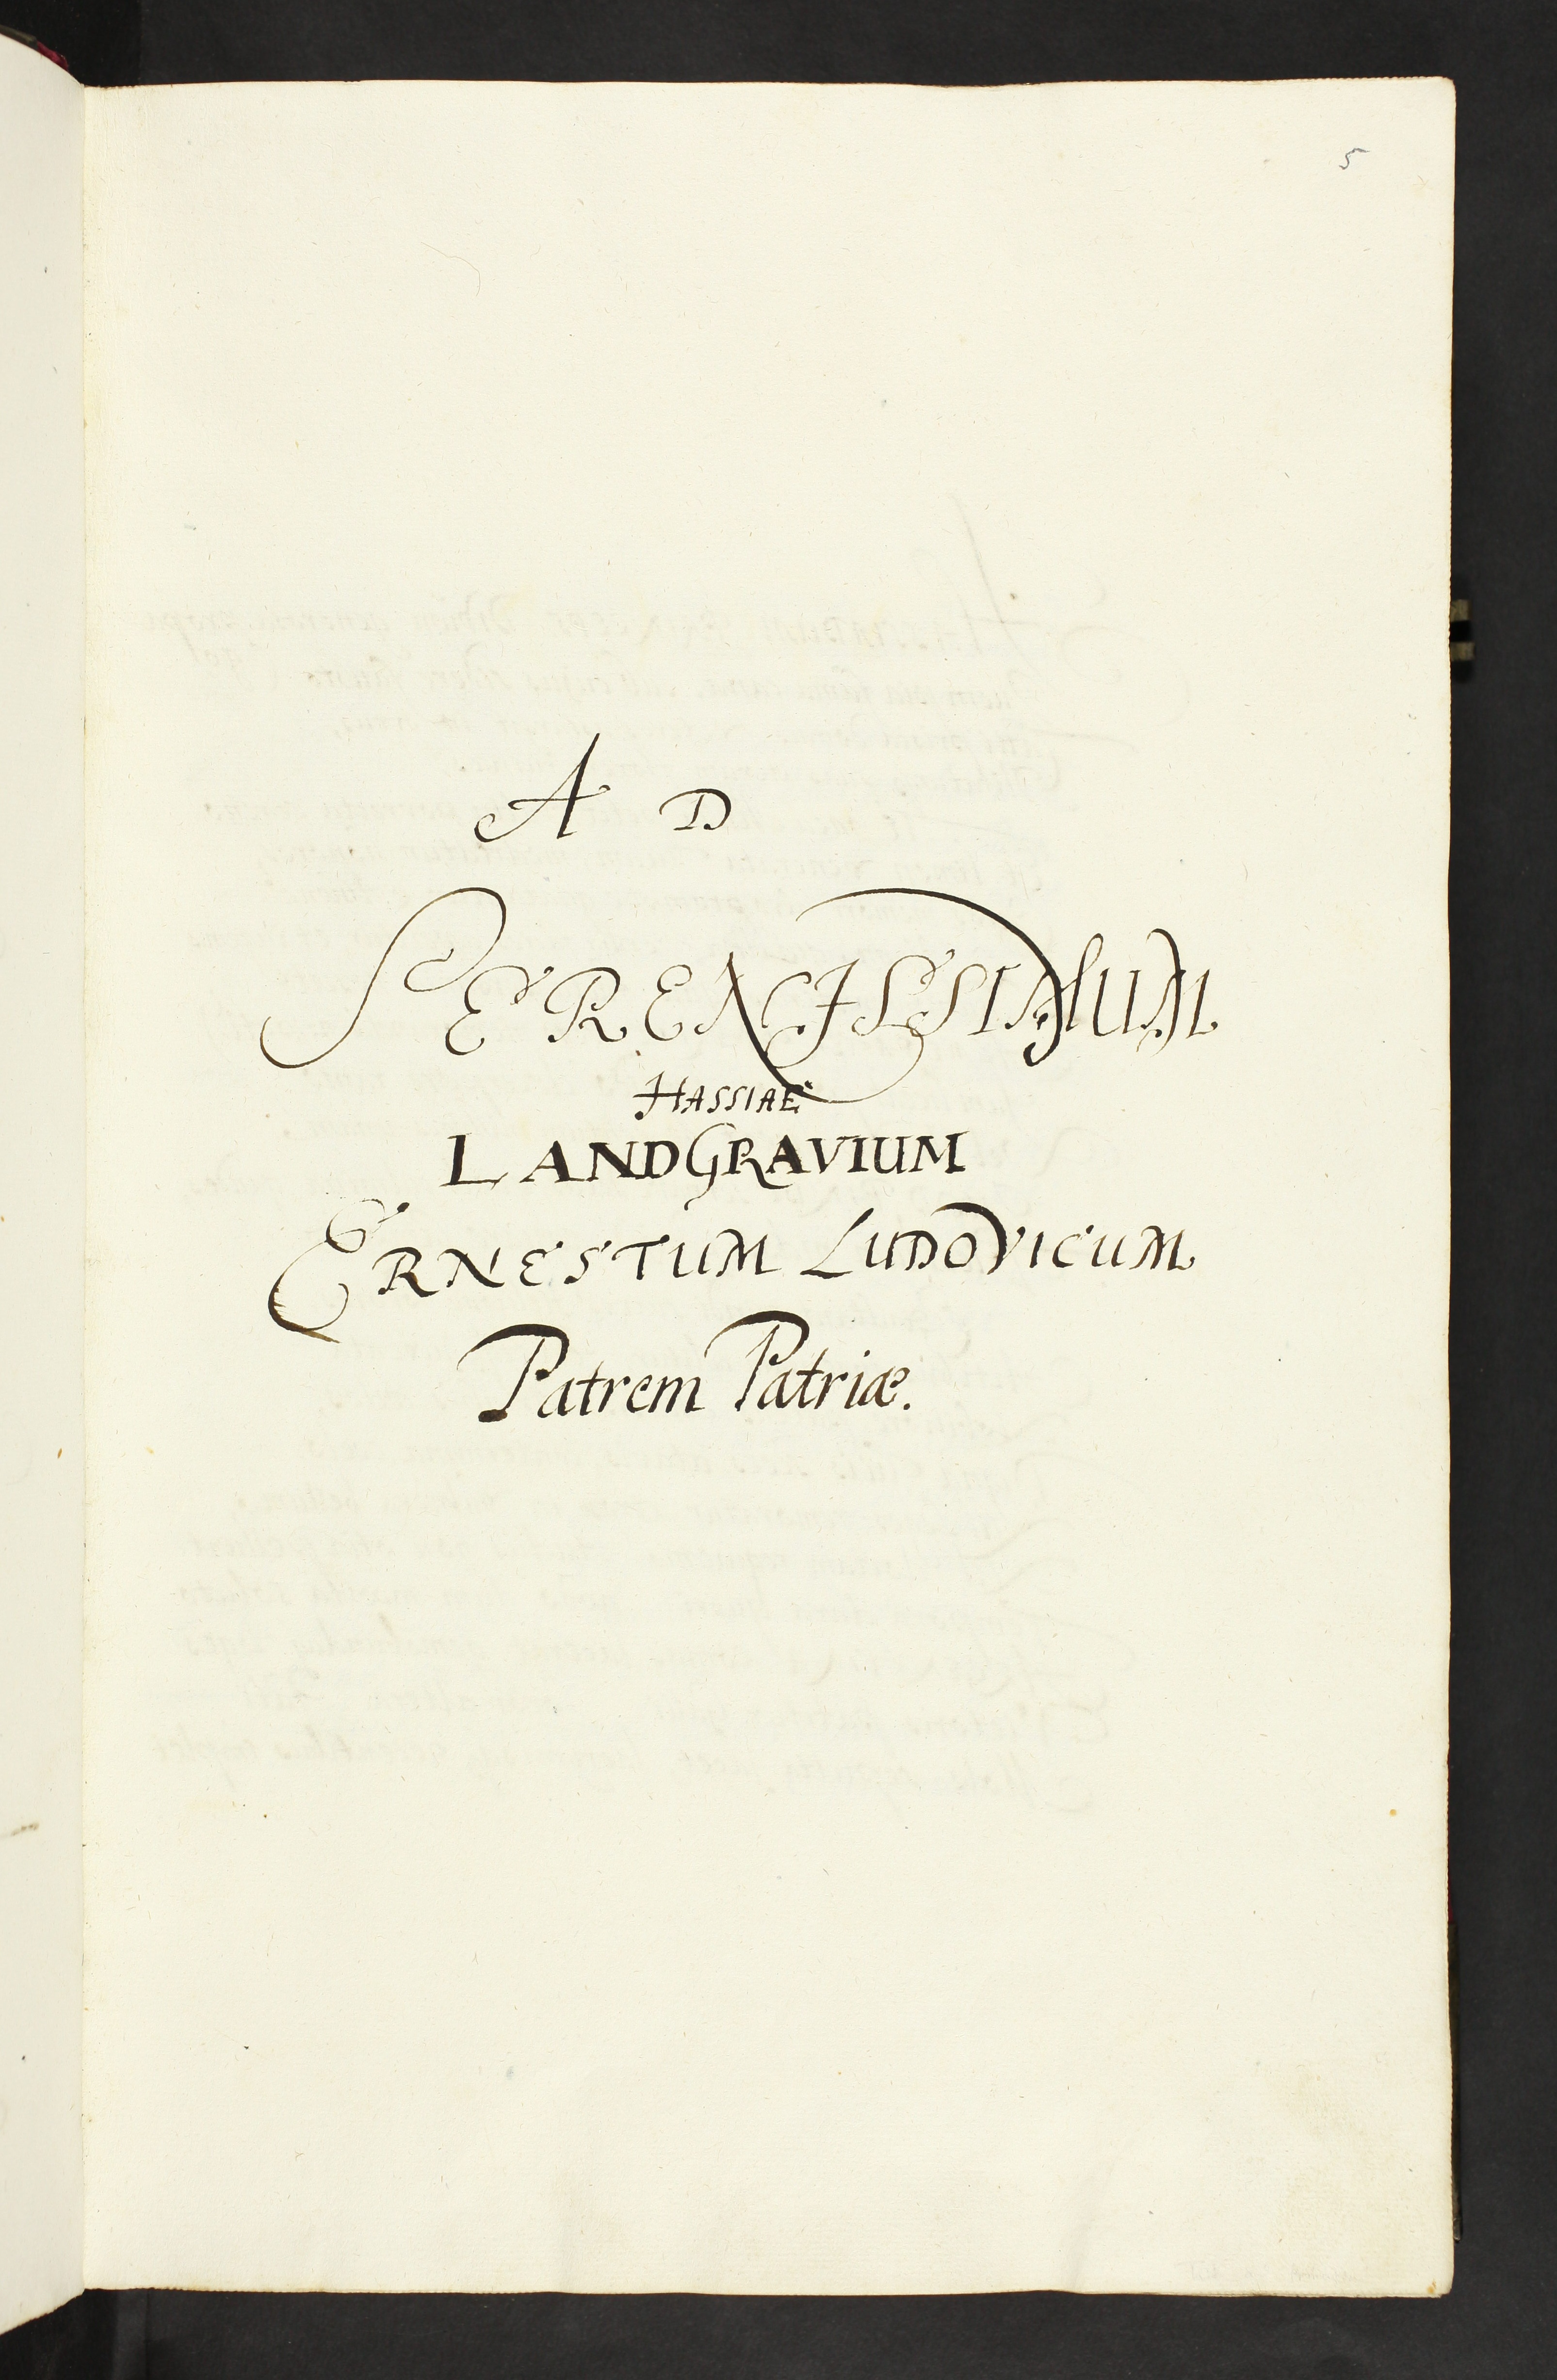 5
AD
SERENISSIMUM
HASSIAE
LANDGRAVIUM
ERNESTUM LUDOVICUM
Patrem Patriæ.